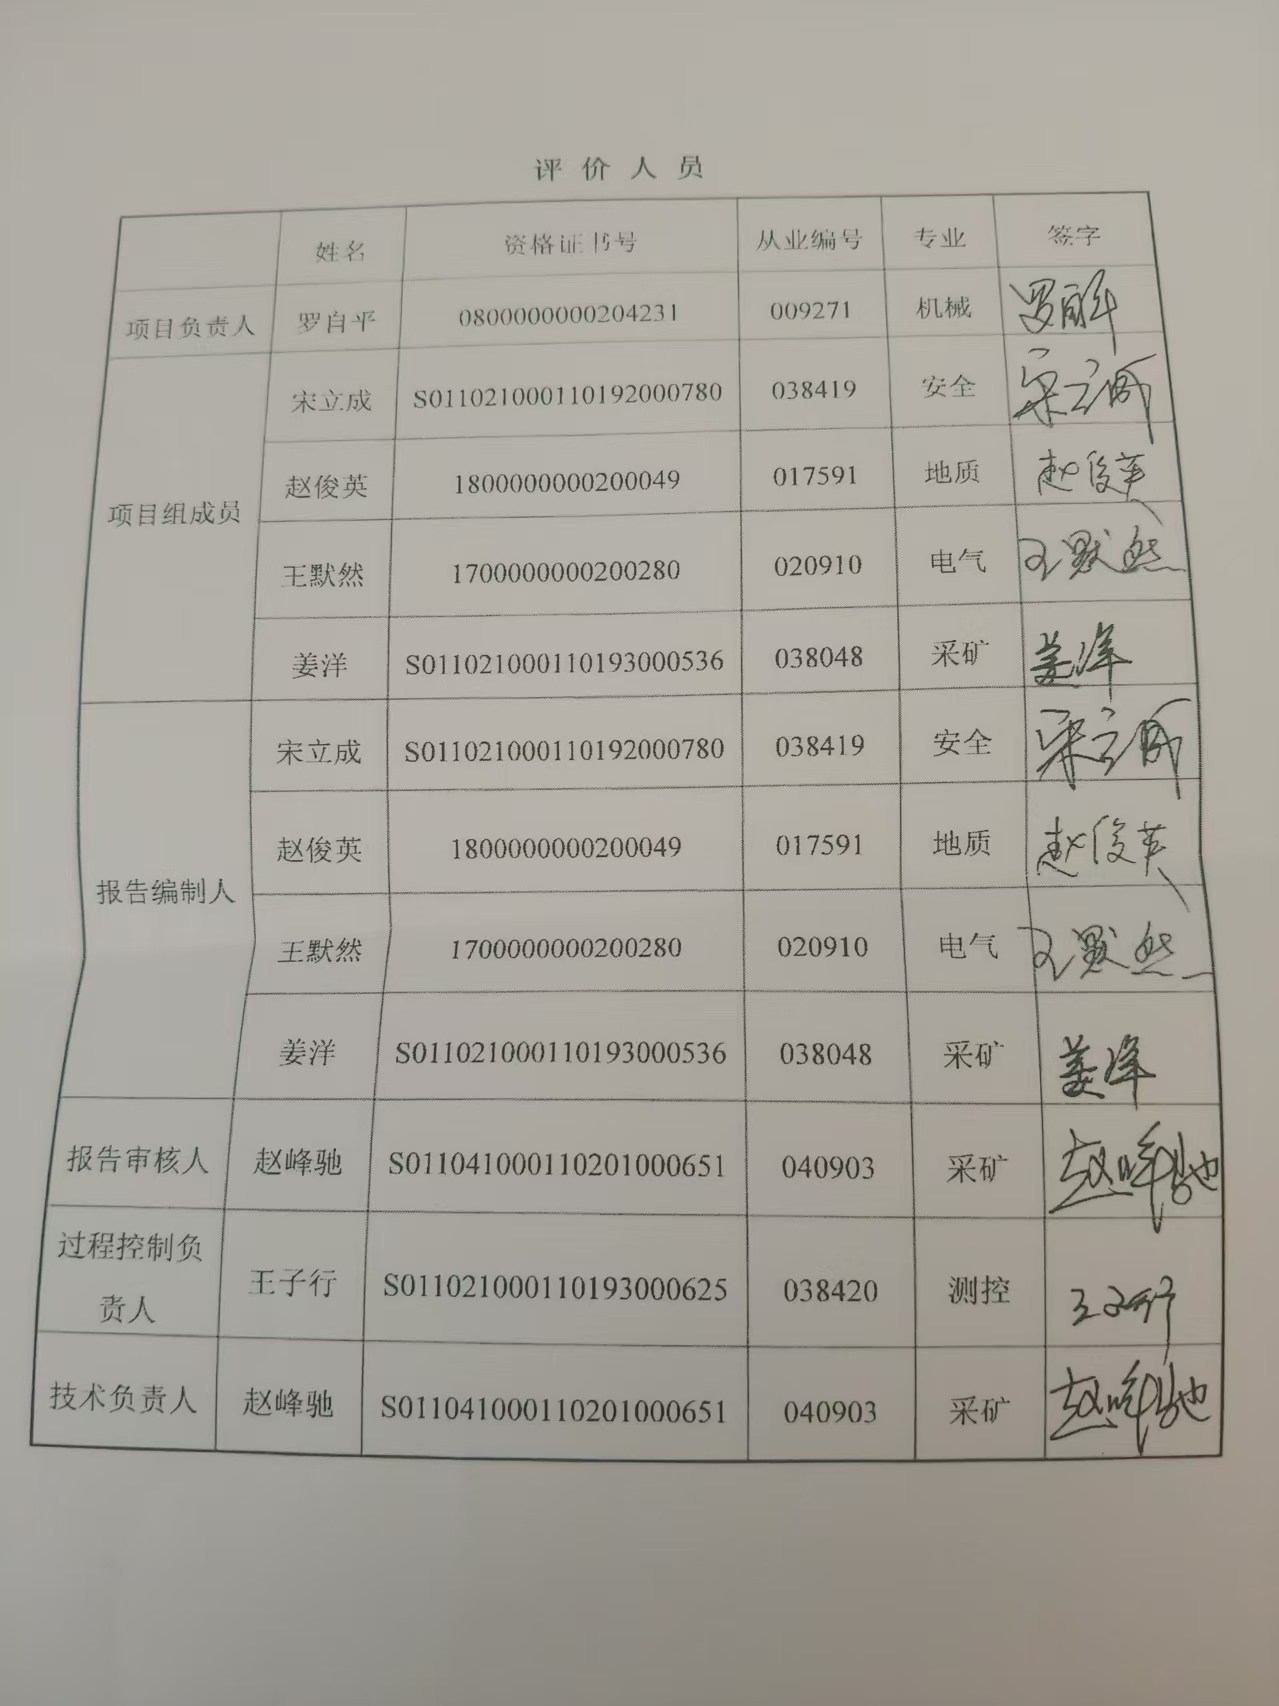 评价人员
姓名 资格证书号 从业编号 专业 签字
项目负责人 罗自平 0800000000204231 009271 机械 罗自平
项目组成员
宋立成 S011021000110192000780 038419 安全 宋立成
赵俊英 1800000000200049 017591 地质 赵俊英
王默然 1700000000200280 020910 电气 王默然
姜洋 S011021000110193000536 038048 采矿 姜洋
报告编制人
宋立成 S011021000110192000780 038419 安全 宋立成
赵俊英 1800000000200049 017591 地质 赵俊英
王默然 1700000000200280 020910 电气 王默然
姜洋 S011021000110193000536 038048 采矿 姜洋
报告审核人 赵峰驰 S011041000110201000651 040903 采矿 赵峰驰
过程控制负
责人
王子行 S011021000110193000625 038420 测控 王子行
技术负责人 赵峰驰 S011041000110201000651 040903 采矿 赵峰驰